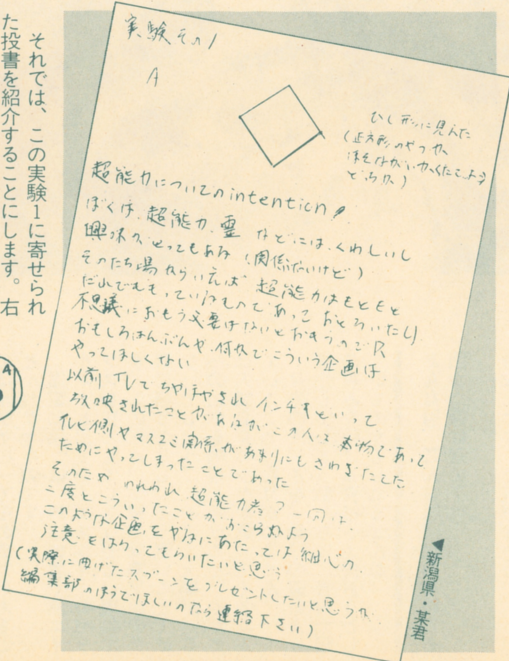 それでは、この実験1に寄せられ
た投書を紹介することにします。右
実験その1
A
ひし形に見えた
(正方形のやつか
どちか)
超能力についてのintention!
ぼくは、超能力、霊 などには、くわしいし
興味が、とってもある (関係ないけど)
そのたち場からいえば 超能力はもともと
だれでももっているものであって おどろいたり
不思議におもう必要はないとおもうのでR
おもしろはんぶんや、何かでこういう企画は
やってほしくない
以前 TVで ちやほやされ インチキといって
放映されたことがあるがこの人は 本物であって
テレビ側やマスコミ関係があまりにもさわぎたてた
ためにやってしまったことであった
そのため われわれ 超能力者?一同は、
二度とこういったことがおこらぬよう
このような企画をやるにあたっては 細心の
注意をはらってもらいたいと思う
(実際に曲げたスプーンをプレゼントしたいと思うが
編集部のほうでほしいのなら連絡下さい)
◀新潟県・某君
A